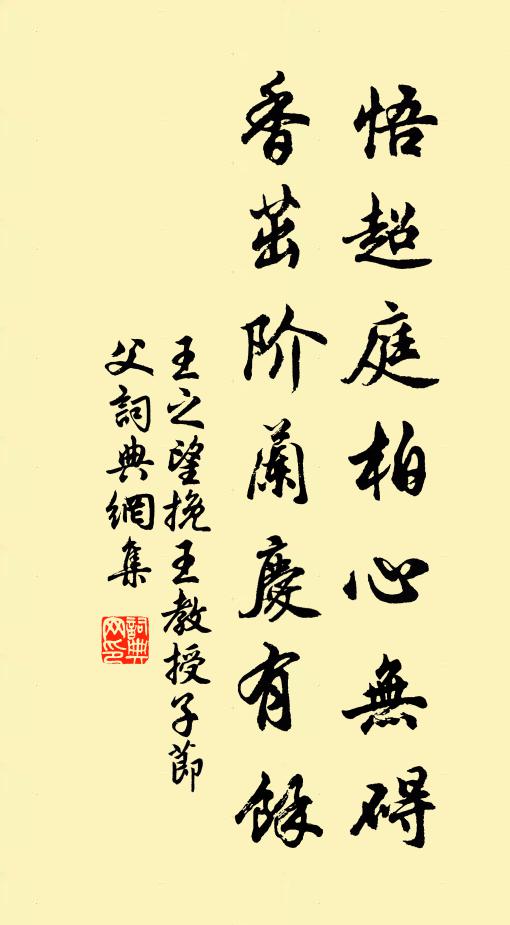 悟超庭柏心無碍
香茁阶蘭慶有餘
王之望挽王教授子節
父詞典網集
詞典
网印